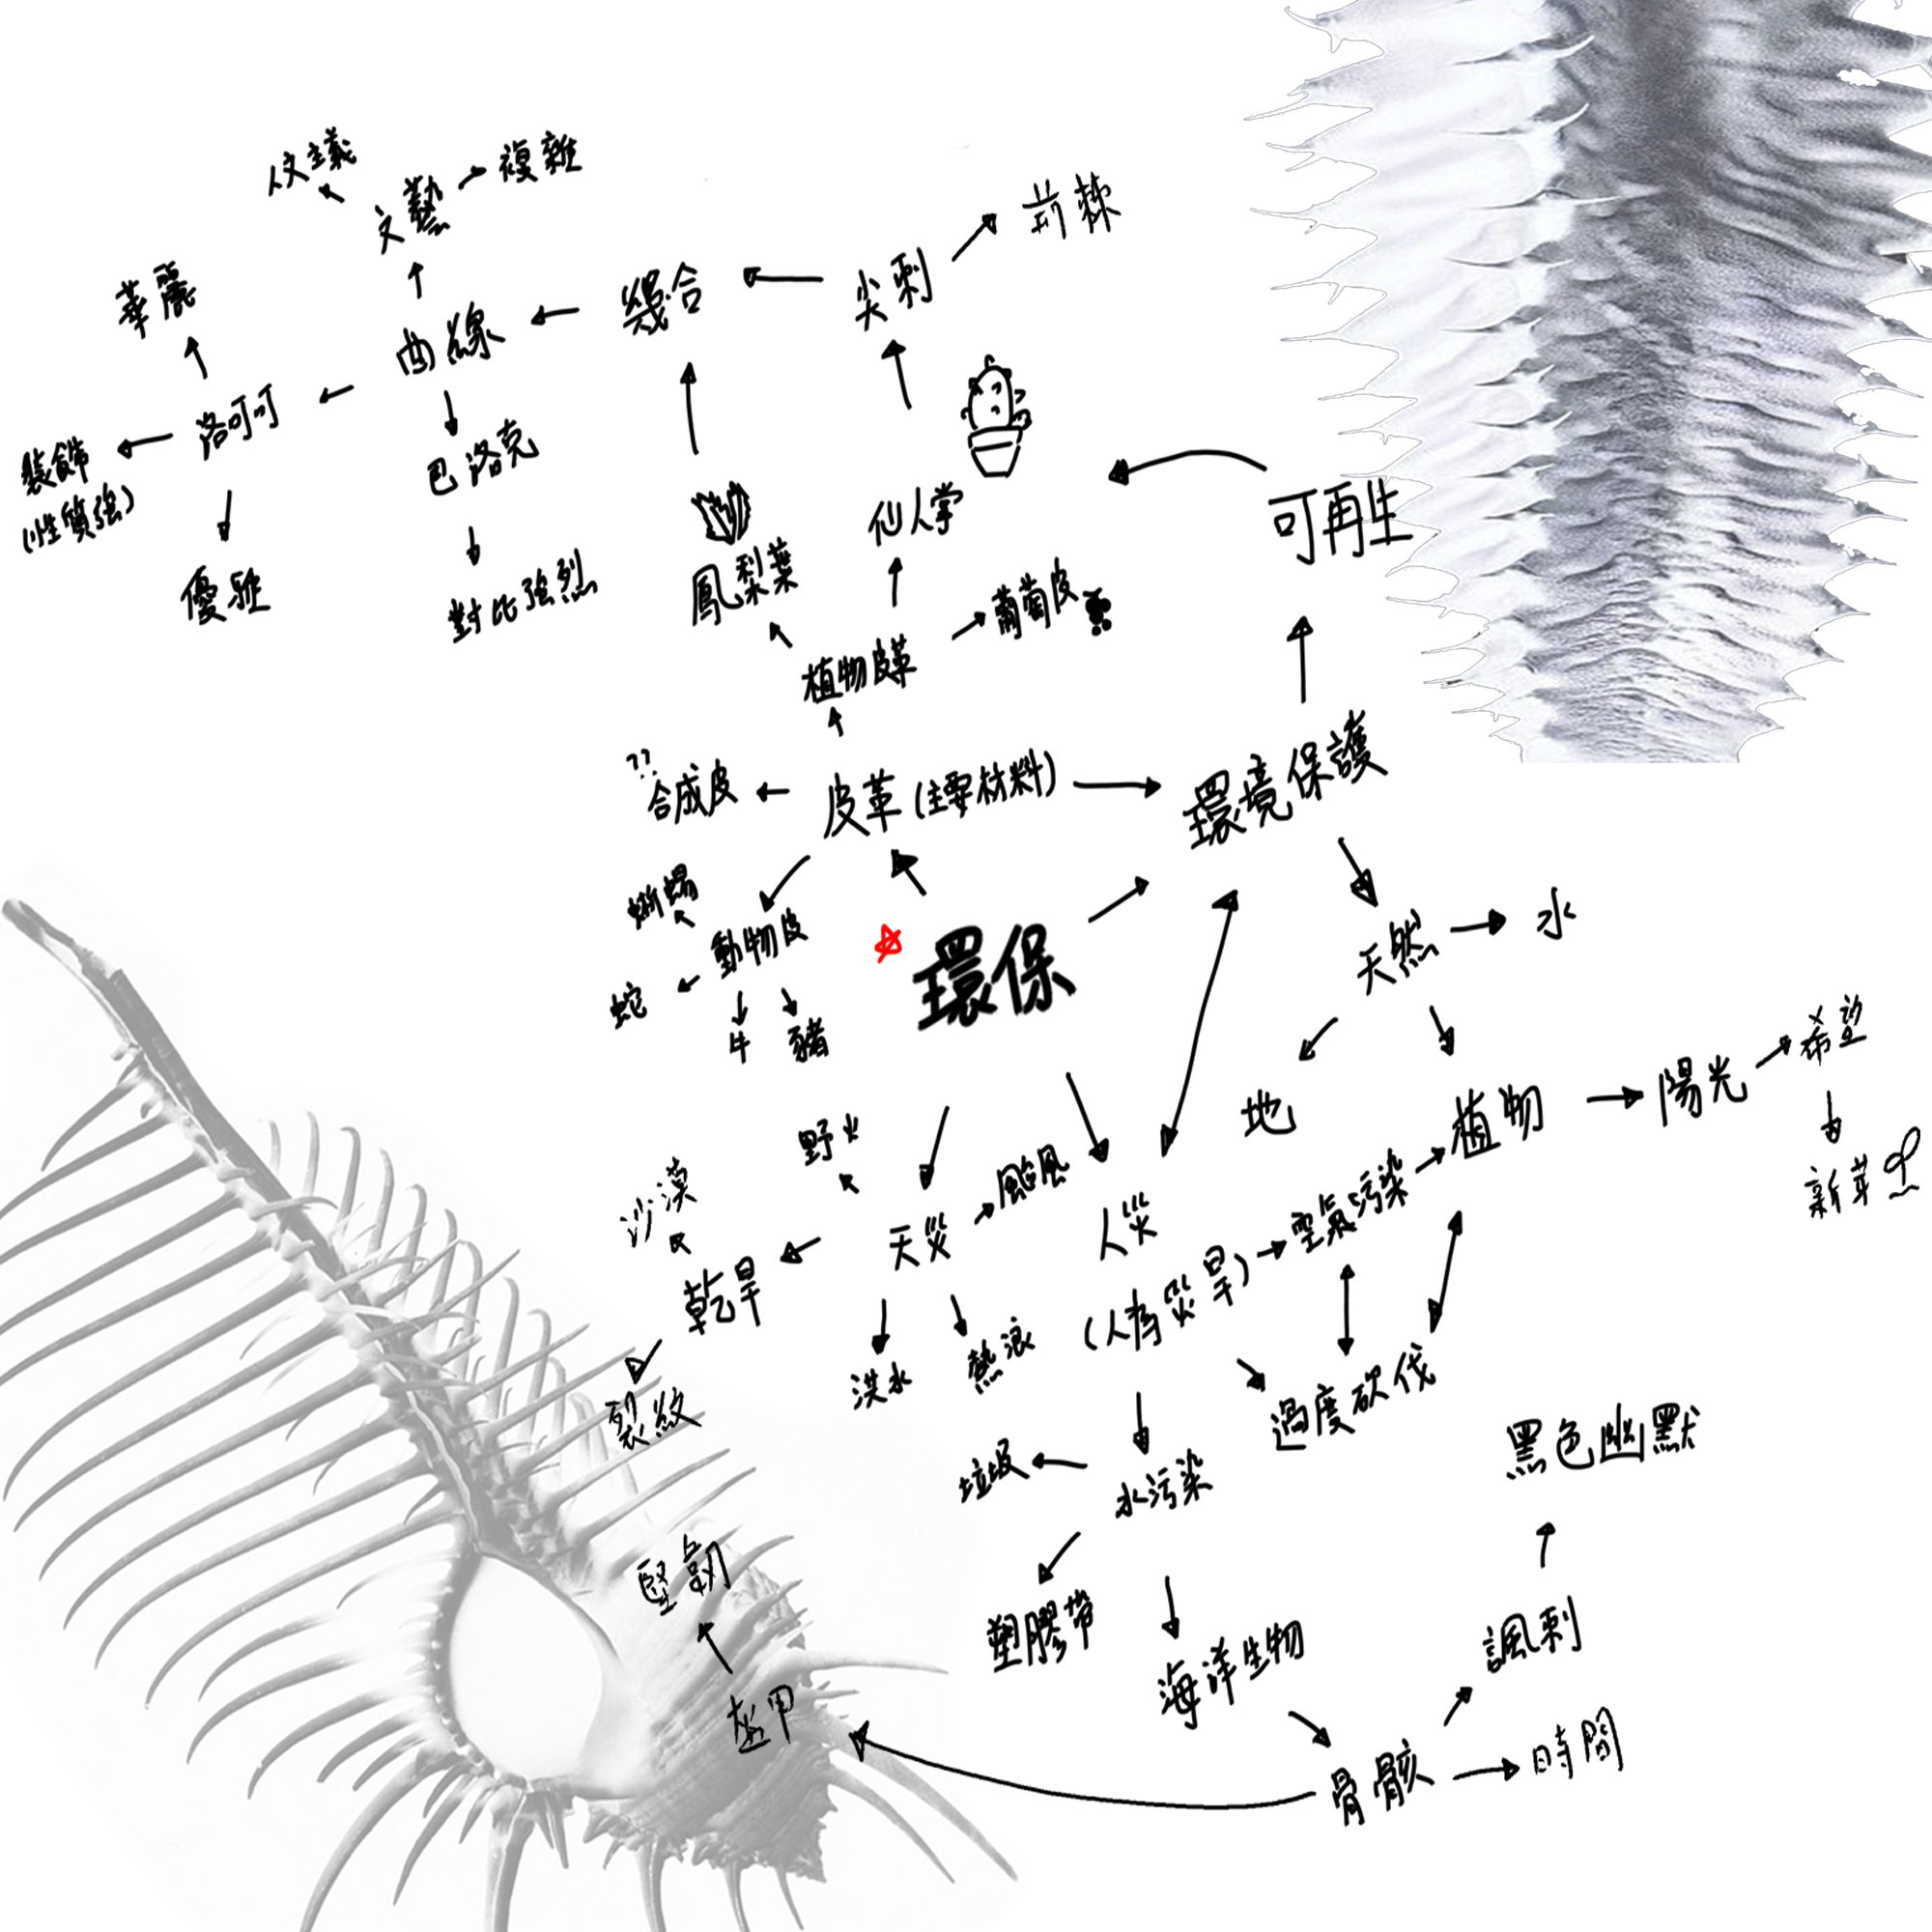 人文主義
文藝
複雜
荊棘
華麗
曲線
幾合
尖刺
洛可可
裝飾
(性質強)
巴洛克
優雅
對比強烈
鳳梨葉
仙人掌
葡萄皮
可再生
植物皮革
??
合成皮
皮革(主要材料)
環境保護
蜥蜴
動物皮
蛇
牛
豬
環保
天然
水
地
植物
陽光
希望
新芽
野火
沙漠
乾旱
天災
颱風
人災
(人為災旱)
空氣污染
裂紋
洪水
熱浪
過度砍伐
垃圾
水污染
塑膠帶
海洋生物
黑色幽默
諷刺
骨骸
時間
堅韌
盔甲